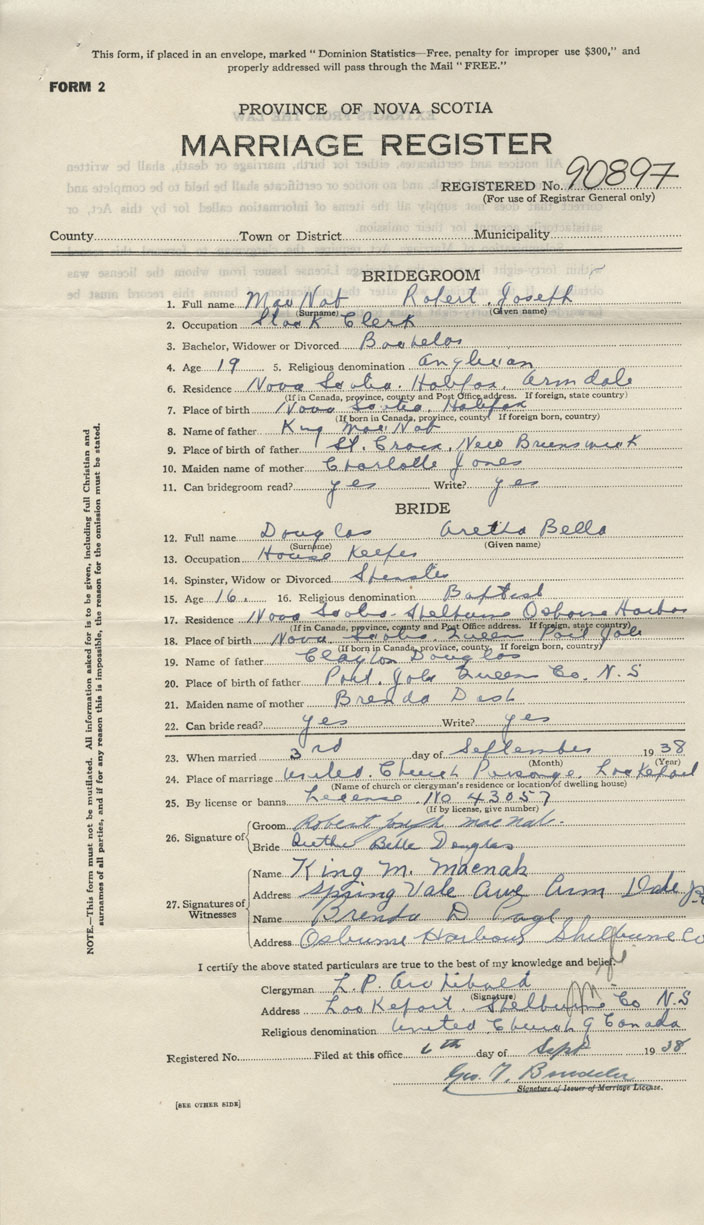 This form, if placed in an envelope, marked "Dominion Statistics—Free, penalty for improper use $300," and
properly addressed will pass through the Mail "FREE."
FORM 2
PROVINCE OF NOVA SCOTIA
MARRIAGE REGISTER
REGISTERED No. 90897
(For use of Registrar General only)
County Town or District Municipality
BRIDEGROOM
1. Full name Mac Nab Robert Joseph
(Surname) (Given name)
2. Occupation Stock Clerk
3. Bachelor, Widower or Divorced Bachelor
4. Age 19 5. Religious denomination Anglican
6. Residence Nova Scotia. Halifax, Armdale
(If in Canada, province, county and Post Office address. If foreign, state country)
7. Place of birth Nova Scotia. Halifax
(If born in Canada, province, county. If foreign born, country)
8. Name of father King Mac Nab
9. Place of birth of father St. Croix, New Brunswick
10. Maiden name of mother Charlotte Jones
11. Can bridegroom read? yes Write? yes
BRIDE
12. Full name Douglas Aretha Bella
(Surname) (Given name)
13. Occupation House Keeper
14. Spinster, Widow or Divorced Spinster
15. Age 16. 16. Religious denomination Baptist
17. Residence Nova Scotia - Shelburne Osborne Harbor
(If in Canada, province, county and Post Office address. If foreign, state country)
18. Place of birth Nova Scotia. Queen Port Joli
(If born in Canada, province, county. If foreign born, country)
19. Name of father Clayton Douglas
20. Place of birth of father Port. Joli Queens Co. N.S
21. Maiden name of mother Brenda
22. Can bride read? yes Write? yes
23. When married 3rd day of September 1938
(Month) (Year)
24. Place of marriage United Church Parsonage, Lockeport
(Name of church or clergyman's residence or location of dwelling house)
25. By license or banns License No 43057
(If by license, give number)
26. Signature of Groom Robert Joseph macnab.
Bride Aretha Belle Douglas
27. Signatures of Witnesses
Name King M. Macnab
Address Spring Vale Ave Arm Dale
Name Brenda D Page
Address Osburne Harbour Shelburne Co
I certify the above stated particulars are true to the best of my knowledge and belief.
Clergyman L.P. Archibald
(Signature)
Address Lockeport. Shelburne Co N.S
Religious denomination United Church of Canada
Registered No. Filed at this office 6th day of Sept 1938
Geo. T.
Signature of Issuer of Marriage License.
[SEE OTHER SIDE]
NOTE.—This form must not be mutilated. All information asked for is to be given, including full Christian and
surnames of all parties, and if for any reason this is impossible, the reason for the omission must be stated.